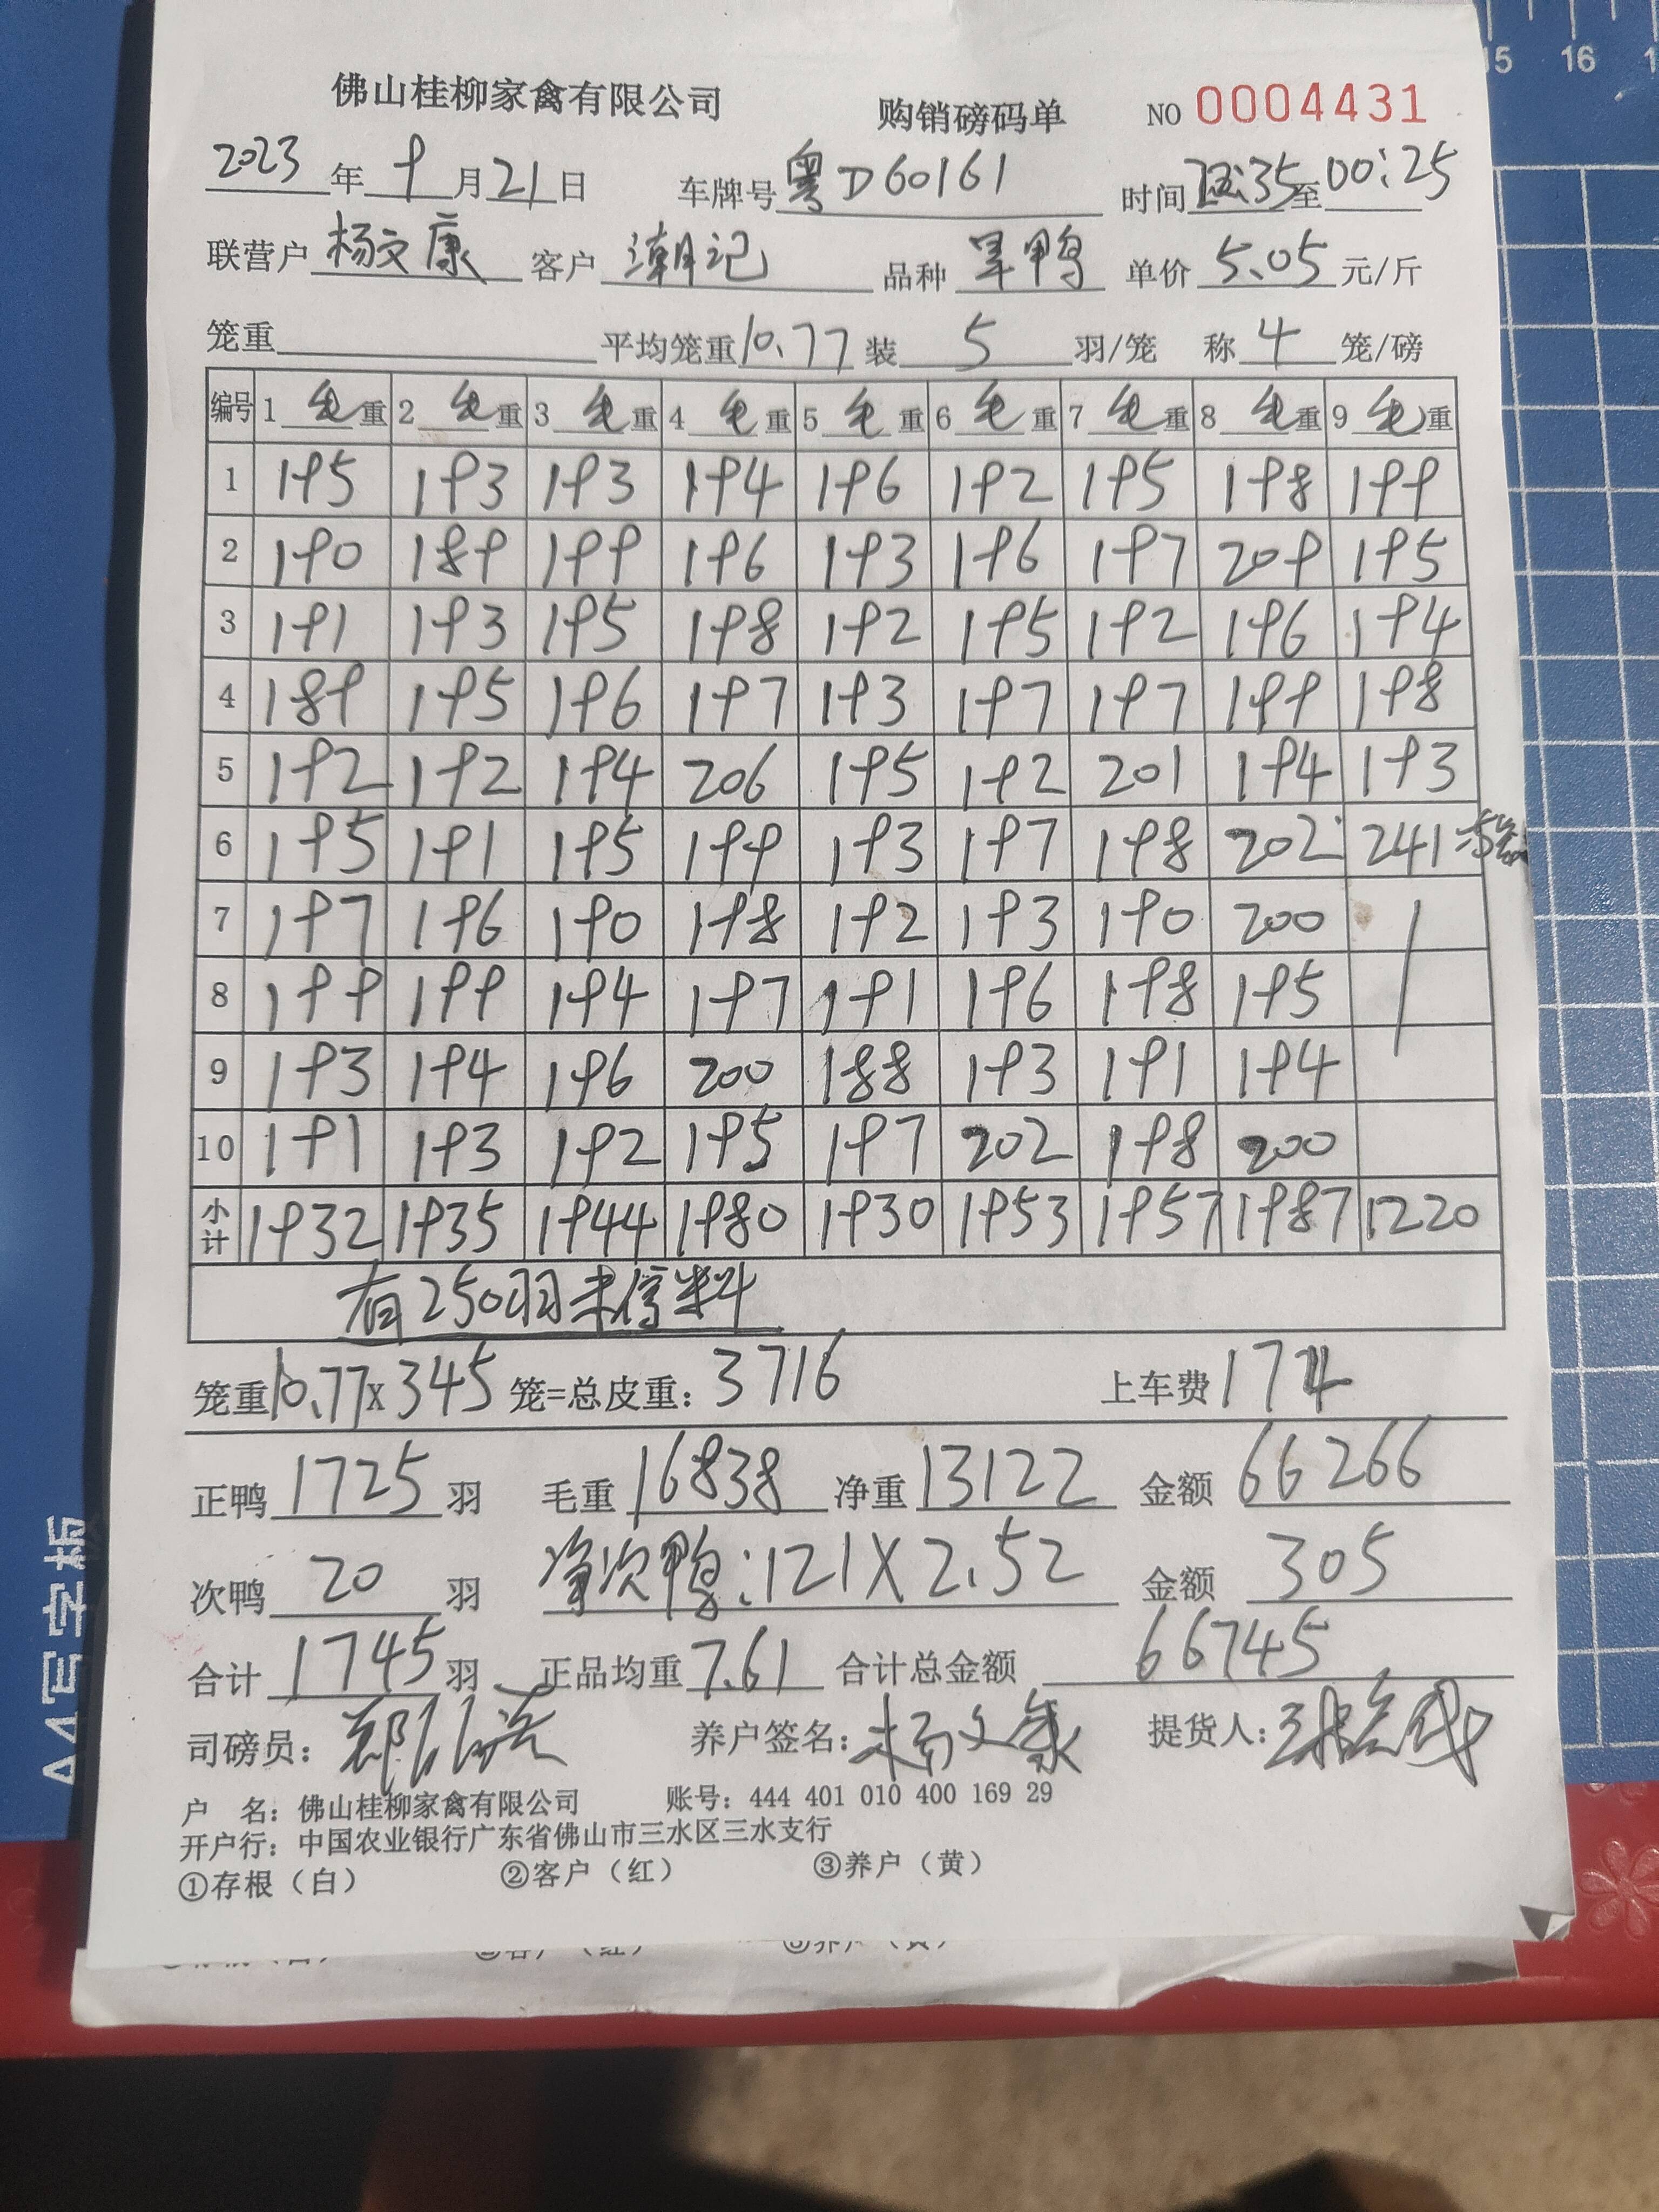 佛山桂柳家禽有限公司 购销磅码单 NO 0004431
2023年9月21日 车牌号粤D60161 时间:35至00:25
联营户杨文康 客户潮记 品种旱鸭 单价5.05元/斤
笼重 平均笼重10.77装5羽/笼 称4笼/磅
编号 1毛重 2毛重 3毛重 4毛重 5毛重 6毛重 7毛重 8毛重 9毛重
1 195 193 193 194 196 192 195 198 199
2 190 189 199 196 193 196 197 209 195
3 191 193 195 198 192 195 192 196 194
4 189 195 196 197 193 197 197 199 198
5 192 192 194 206 195 192 201 194 193
6 195 191 195 199 193 197 198 202 241
7 197 196 190 198 192 193 190 200
8 199 199 194 197 191 196 198 195
9 193 194 196 200 188 193 191 194
10 191 193 192 195 197 202 198 200
小计 1932 1935 1944 1980 1930 1953 1957 1987 1220
有250羽未停料
笼重10.77x345笼=总皮重:3716 上车费174
正鸭1725羽 毛重16838 净重13122 金额66266
次鸭20羽 净次鸭:121X2.52 金额305
合计1745羽 正品均重7.61 合计总金额66745
司磅员: 养户签名:杨文康 提货人:
户 名: 佛山桂柳家禽有限公司 账号: 444 401 010 400 169 29
开户行: 中国农业银行广东省佛山市三水区三水支行
①存根（白） ②客户（红） ③养户（黄）
A4写字板
15 16